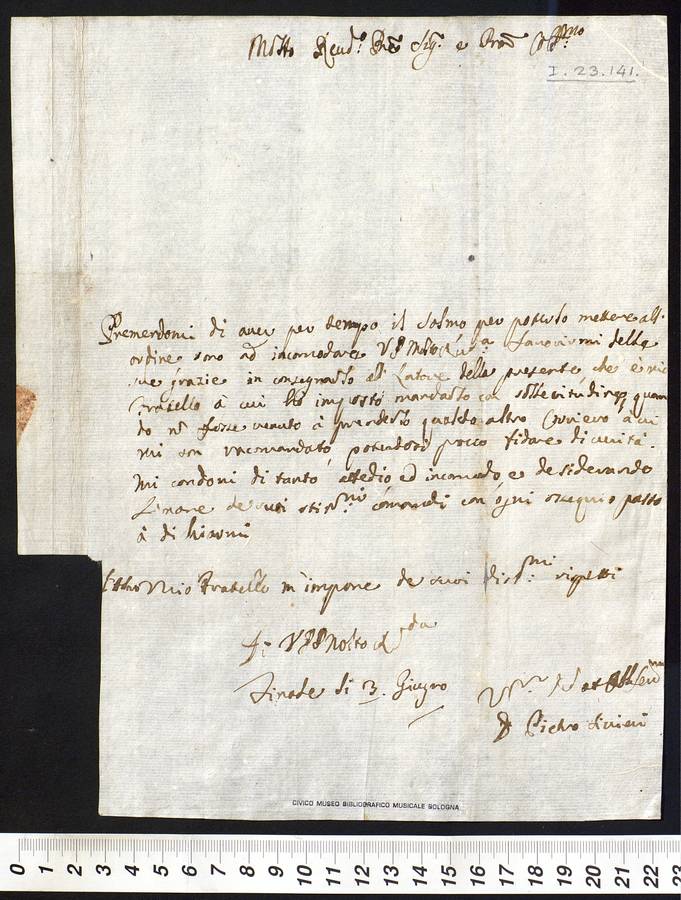 Molto Revd.º Sig. e Pron
I.23.141.
Premendomi di aver per tempo il Salmo per poterlo mettere all'
ordine sono ad incomodare V.P. Molto favorirmi della
sue grazie in consegnarlo al Latore della presente, che è mio
fratello à cui hò imposto mandarlo con sollecitudine, quan
do nõ fosse venuto à prenderlo qualche altro Corriero à cui
mi son racomandato, potendosi pocco fidare di
Mi condoni di tanto attedio, ed incomodo, e desiderando
l'onore de suoi stim.mi comandi con ogni ossequio passo
à di
mio Fratello m'impone de suoi dist.mi rispetti
Di V.P. Molto Rda
di 3. Giugno
D. Pietro
CIVICO MUSEO BIBLIOGRAFICO MUSICALE BOLOGNA
0 1 2 3 4 5 6 7 8 9 10 11 12 13 14 15 16 17 18 19 20 21 22 23